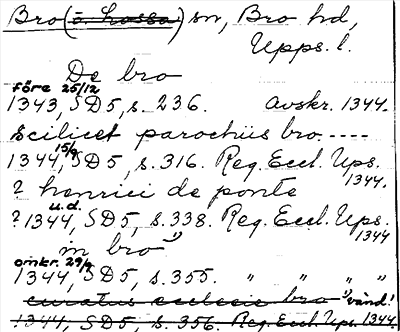 Bro (o hossa) sn, Bro hd,
Upps. l.
De bro
före 25/12
1343, SD5, s. 236. Avskr. 1344.
scilicet parochiis bro ----
15/9
1344, SD5, s. 316. Reg. Eccl. Ups.
1344.
? henrici de ponte
u.d.
? 1344, SD5, s. 338. Reg. Eccl. Ups.
1344
in bro
omkr. 29/9
1344, SD5, s. 355. " " " "
curatus ecclesie bro vänd!
1344, SD5, s. 356. Reg. Eccl. Ups. 1344